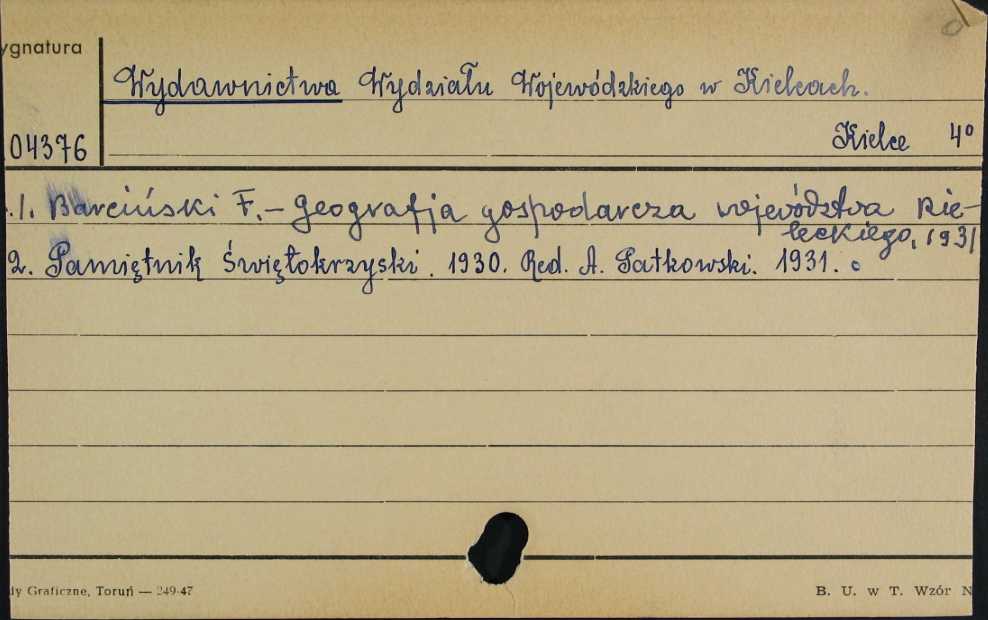 ygnatura
Wydawnictwa Wydziału Wojewódzkiego w Kielcach.
04376
Kielce 4º
1. Barciński F. – Geografja gospodarcza województwa Kie-
leckiego, 1931
2. Pamiętnik Świętokrzyski. 1930. Red. A. Patkowski. 1931.
dy Graficzne, Toruń — 249-47
B. U. w T. Wzór N